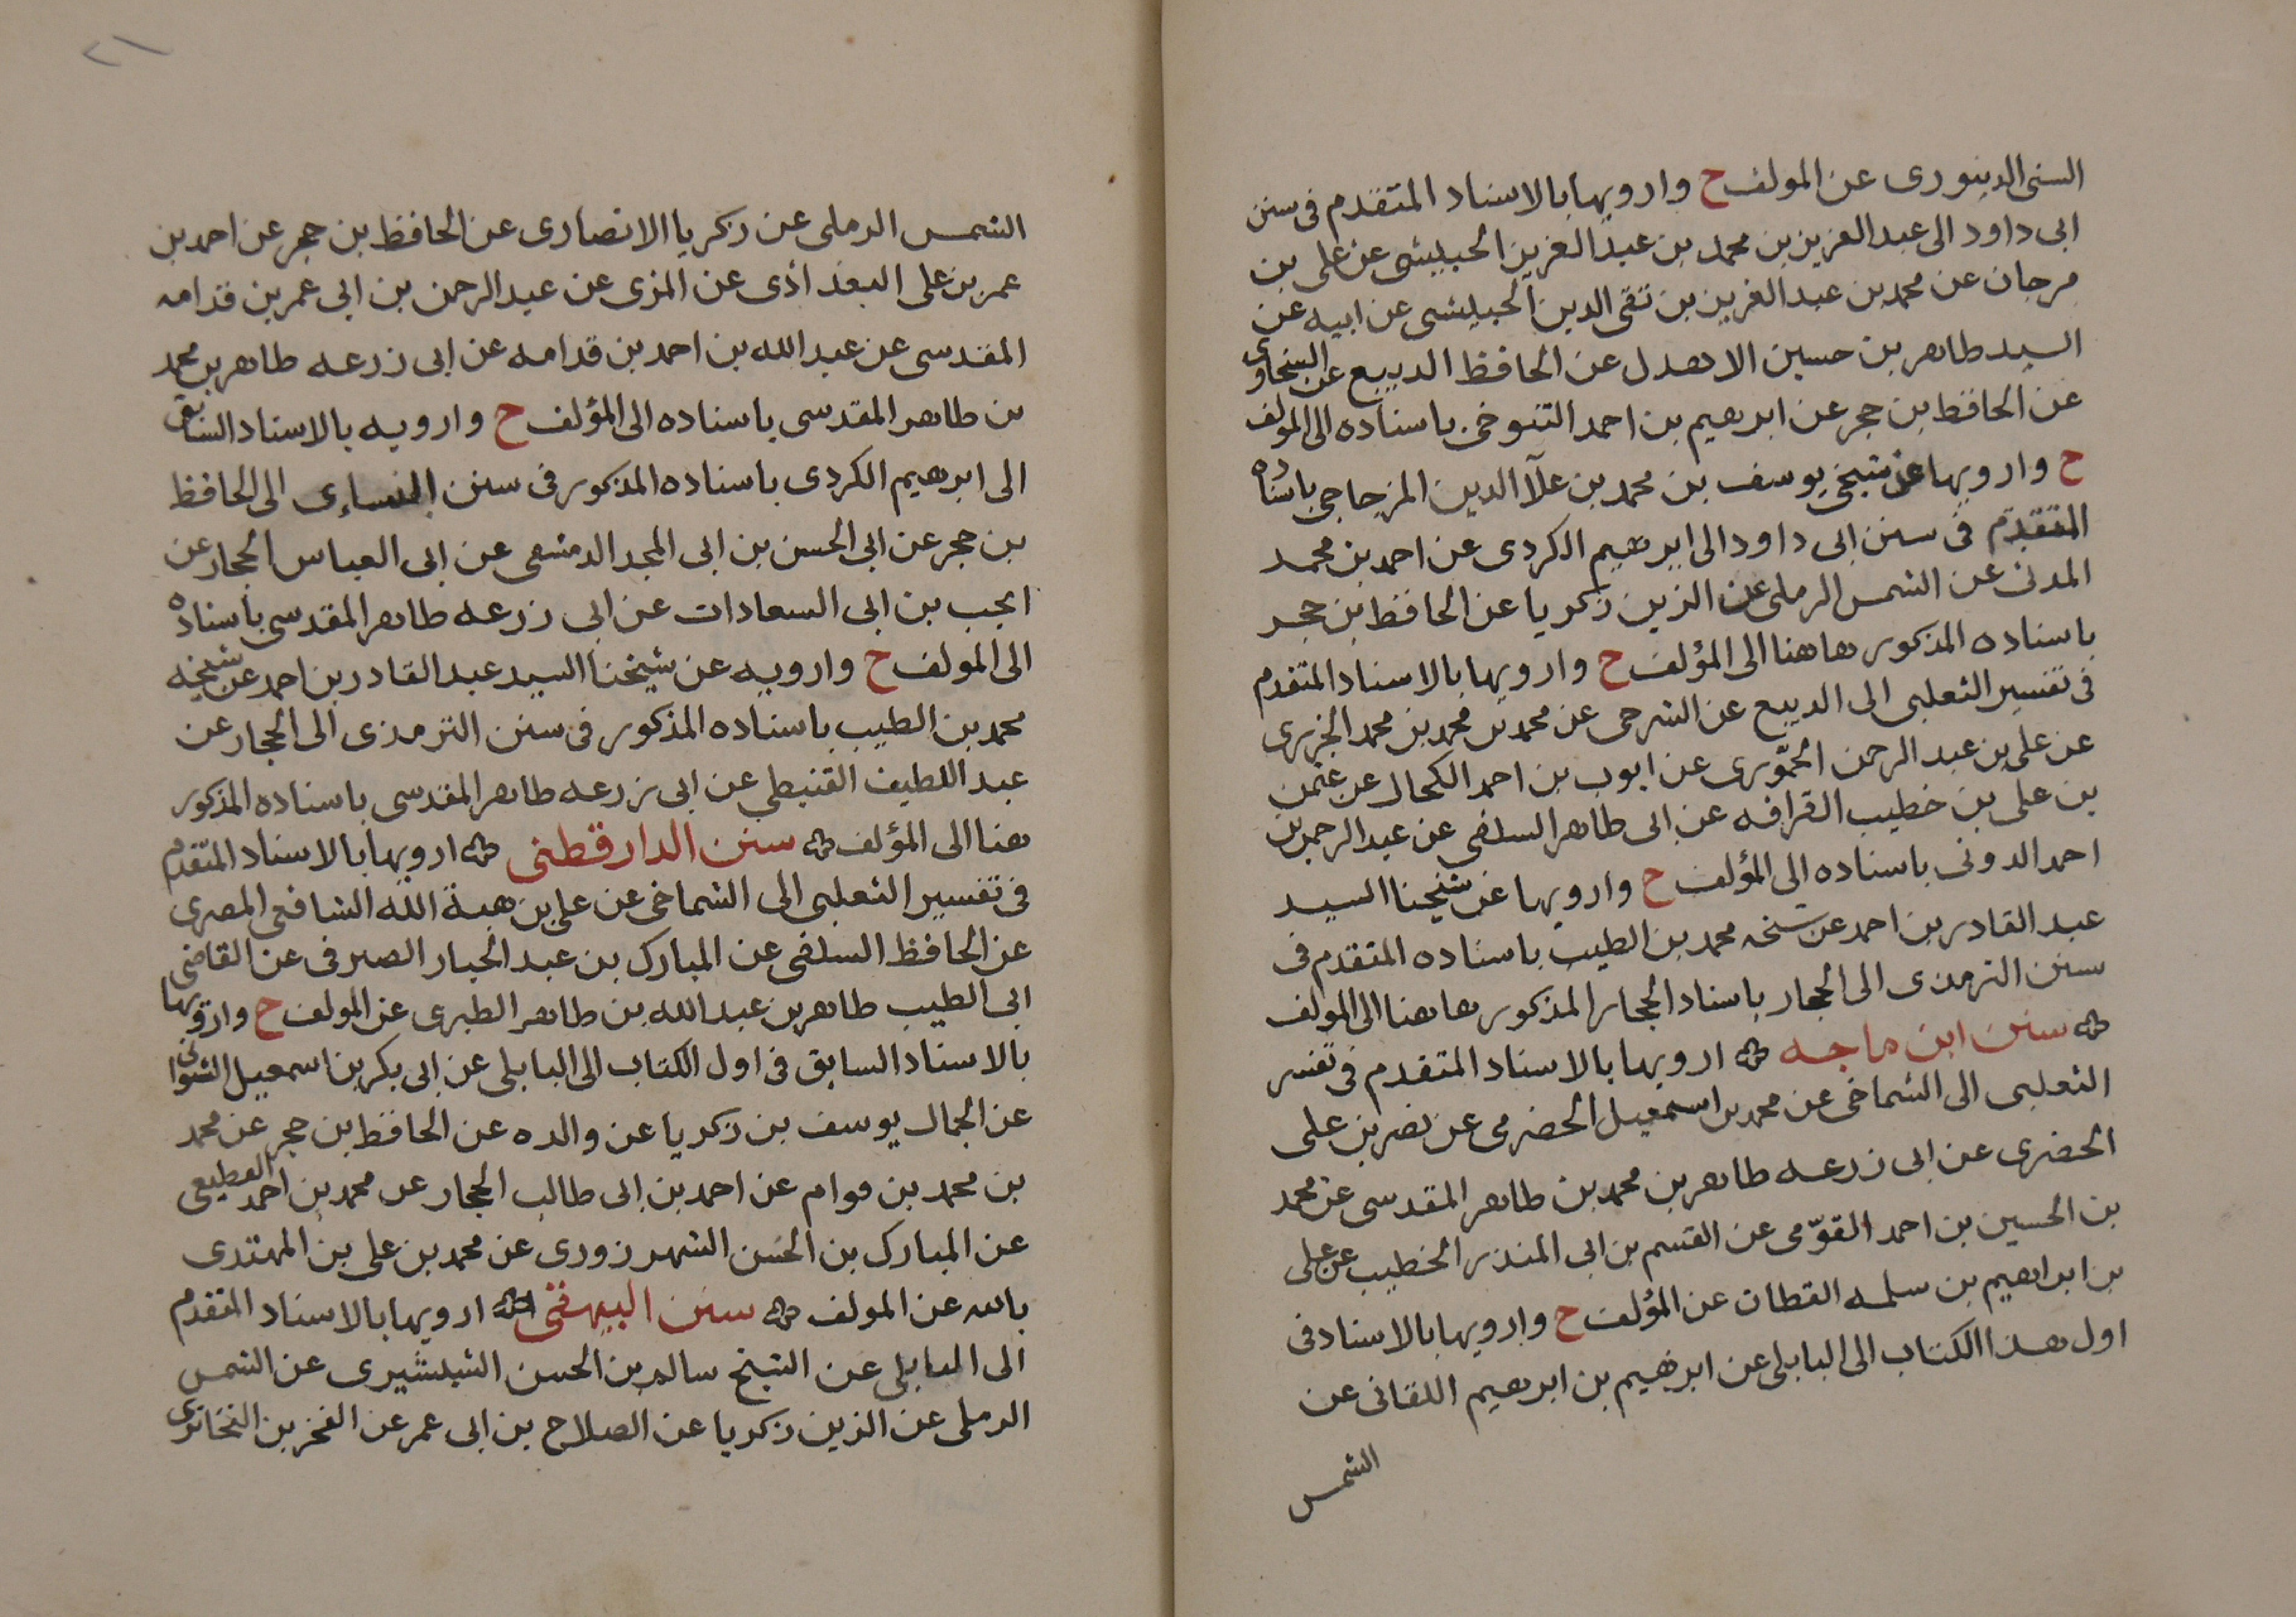 السنى الدينورى عن المولف ح وارويها بالاسناد المتقدم فى سنن
ابى داود الى عبد العزيز بن محمد بن عبد العزيز الحبيشى عن على بن
مرجان عن محمد بن عبد العزيز بن تقى الدين الحبيشى عن ابيه عن
السيد طاهر بن حسين الاهدل عن الحافظ الديبع عن السخاوى
عن الحافظ بن حجر عن ابرهيم بن احمد التنوخى باسناده الى المولف
ح وارويها عن شيخى يوسف بن محمد بن علآ الدين المزجاجى باسناده
المتقدم فى سنن ابى داود الى ابرهيم الكردى عن احمد بن محمد
المدنى عن الشمس الرملى عن الزين زكريا عن الحافظ بن حجر
باسناده المذكور هاهنا الى المؤلف ح وارويها بالاسناد المتقدم
فى تفسير الثعلبى الى الديبع عن الشرجى عن محمد بن محمد بن محمد الجزرى
عن على بن عبد الرحمن الحموى عن ايوب بن احمد الكحال عن عثمن
بن على بن خطيب القرافه عن ابى طاهر السلفى عن عبد الرحمن بن
احمد الدونى باسناده الى المؤلف ح وارويها عن شيخنا السيد
عبد القادر بن احمد عن شيخه محمد بن الطيب باسناده المتقدم فى
سنن الترمذى الى الحجار باسناد الحجار المذكور هاهنا الى المولف
سنن ابن ماجه ارويها بالاسناد المتقدم فى تفسر
الثعلبى الى الشماخى عن محمد بن اسمعيل الحضرمى عن نصر بن على
الحضرى عن ابى زرعه طاهر بن محمد بن طاهر المقدسى عن محمد
بن الحسين بن احمد القوّمى عن القسم بن ابى المنذر الخطيب عن على
بن ابراهيم بن سلمه القطان عن المؤلف ح وارويها بالاسناد فى
اول هذا الكتاب الى البابلى عن ابرهيم بن ابرهيم اللقانى عن
الشمس
٢١
الشمس الرملى عن زكريا الانصارى عن الحافظ بن حجر عن احمد بن
عمر بن على البغداذى عن المزى عن عبد الرحمن بن ابى عمر بن قدامه
المقدسى عن عبد الله بن احمد بن قدامه عن ابى زرعه طاهر بن محمد
بن طاهر المقدسى باسناده الى المؤلف ح وارويه بالاسناد السابق
الى ابرهيم الكردى باسناده المذكور فى سنن النساءى الى الحافظ
بن حجر عن ابى الحسن بن ابى المجد الدمشقى عن ابى العباس الحجار عن
انجب بن ابى السعادات عن ابى زرعه طاهر المقدسى باسناده
الى المولف ح وارويه عن شيخنا السيد عبد القادر بن احمد عن شيخه
محمد بن الطيب باسناده المذكور فى سنن الترمذى الى الحجار عن
عبد اللطيف القنيطى عن ابى زرعه طاهر المقدسى باسناده المذكور
هنا الى المؤلف سنن الدارقطنى ارويها بالاسناد المتقدم
فى تفسير الثعلبى الى الشماخى عن على بن هبة الله الشافعى المصرى
عن الحافظ السلفى عن المبارك بن عبد الجبار الصيرفى عن القاضى
ابى الطيب طاهر بن عبد الله بن طاهر الطبرى عن المولف ح وارويها
بالاسناد السابق فى اول الكتاب الى البابلى عن ابى بكر بن اسمعيل الشنوانى
عن الجمال يوسف بن زكريا عن والده عن الحافظ بن حجر عن محمد
بن محمد بن قوام عن احمد بن ابى طالب الحجار عن محمد بن احمد القطيعى
عن المبارك بن الحسن الشهرزورى عن محمد بن على بن المهتدى
بالله عن المولف سنن البيهقى ارويها بالاسناد المتقدم
الى البابلى عن الشيخ سالم بن الحسن الشبشيرى عن الشمس
الرملى عن الزين زكريا عن الصلاح بن ابى عمر عن الفخر بن البخارى